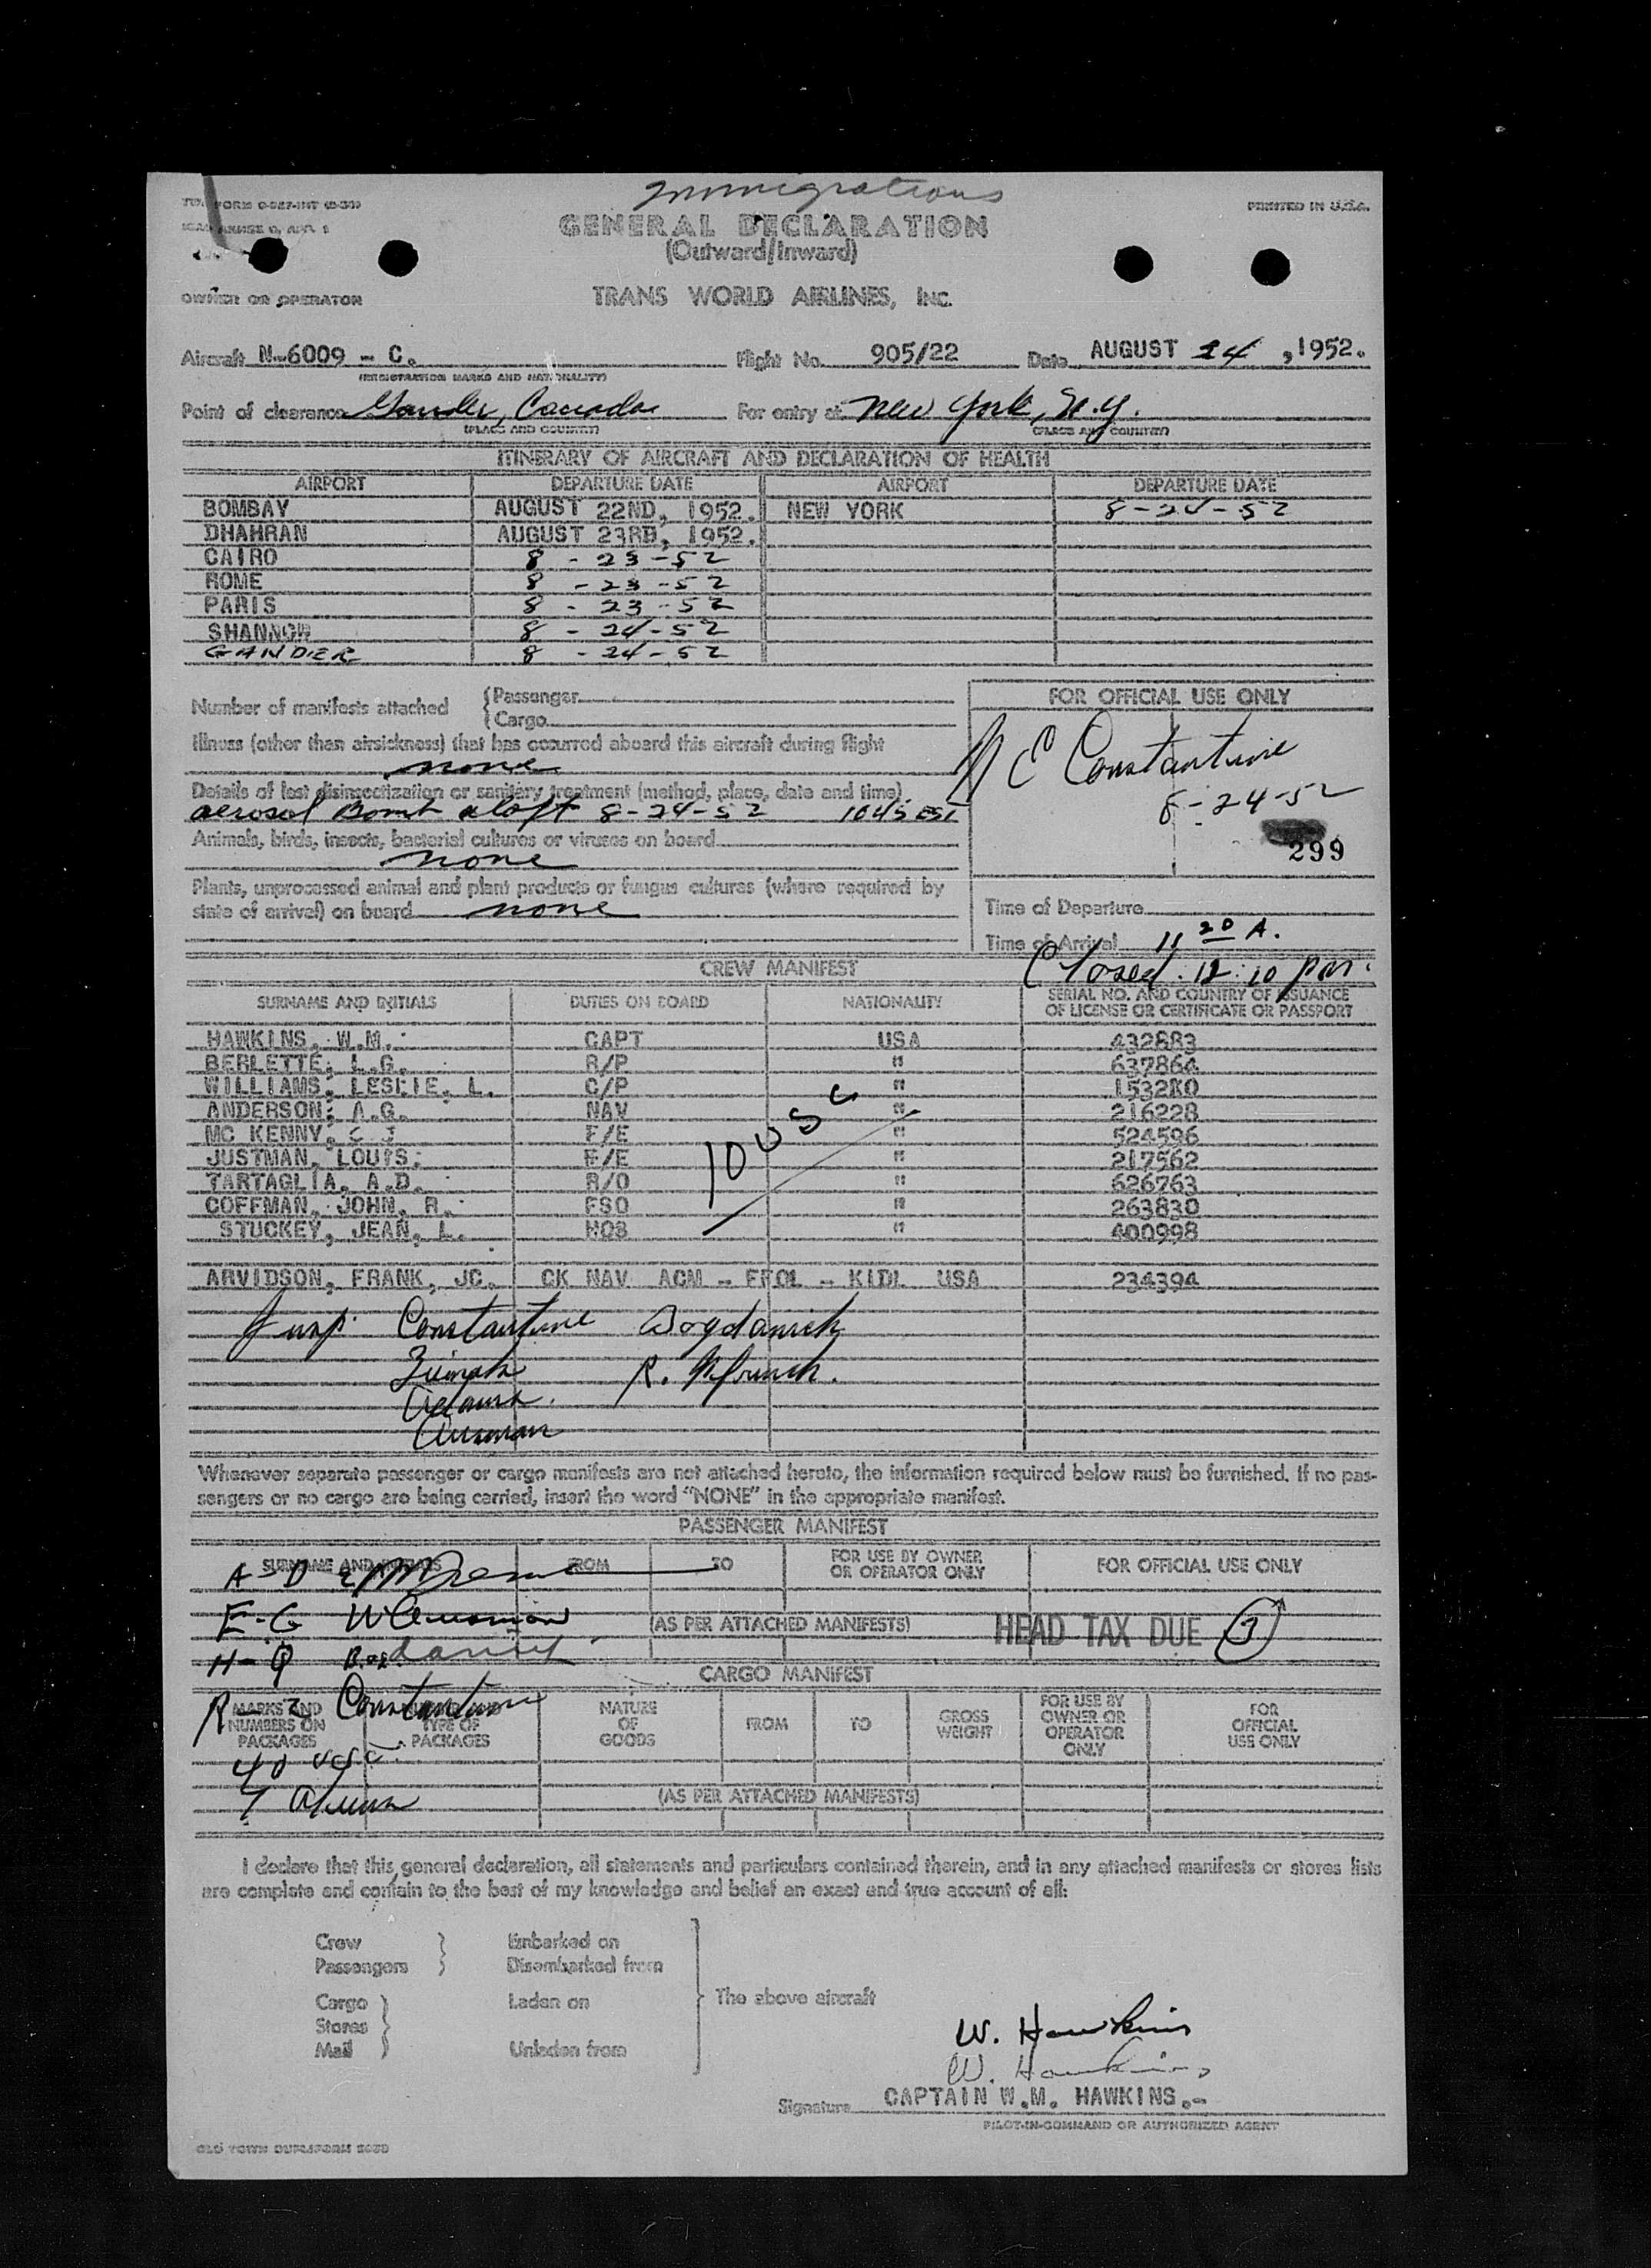 Immigrations
TWA FORM
PRINTED IN U.S.A.
GENERAL DECLARATION
(Outward/Inward)
OWNER OR OPERATOR TRANS WORLD AIRLINES, INC.
Aircraft N-6009 - C. Flight No. 905/22 Date AUGUST 24, 1952.
(REGISTRATION MARKS AND NATIONALITY)
Point of clearance Gander, Canada For entry at New York, N.Y.
(PLACE AND COUNTRY) (PLACE AND COUNTRY)
ITINERARY OF AIRCRAFT AND DECLARATION OF HEALTH
AIRPORT DEPARTURE DATE AIRPORT DEPARTURE DATE
BOMBAY AUGUST 22ND, 1952. NEW YORK 8-24-52
DHAHRAN AUGUST 23RD, 1952.
CAIRO 8 - 23-52
ROME 8 - 23-52
PARIS 8 - 23-52
SHANNON 8 - 24-52
GANDER 8 - 24-52
Number of manifests attached { Passenger
Cargo
FOR OFFICIAL USE ONLY
Illness (other than airsickness) that has occurred aboard this aircraft during flight
none
N E Constantine
8-24-52
299
Details of last disinsectization or sanitary treatment (method, place, date and time)
aerosol Bomb aloft 8-24-52 1045 EST
Animals, birds, insects, bacterial cultures or viruses on board
none
Plants, unprocessed animal and plant products or fungus cultures (where required by
state of arrival) on board none
Time of Departure
Time of Arrival 11 20 A.
Closed. 12:10 pm.
CREW MANIFEST
SURNAME AND INITIALS DUTIES ON BOARD NATIONALITY SERIAL NO. AND COUNTRY OF ISSUANCE
OF LICENSE OR CERTIFICATE OR PASSPORT
HAWKINS, W.M. CAPT USA 432883
BERLETTE, L.G. R/P " 637864
WILLIAMS, LESLIE, L. C/P " 1532K0
ANDERSON, A.G. NAV " 216228
MC KENNY, C J F/E " 524596
JUSTMAN, LOUIS. F/E " 217562
TARTAGLIA, A.D. R/O " 626763
COFFMAN, JOHN, R. FSO " 263830
STUCKEY, JEAN, L. HOS " 400998
10 USC
ARVIDSON, FRANK, JC. CK NAV ACM - EFOL - KIDL USA 234394
Insp. Constantine Bogdanich
Whenever separate passenger or cargo manifests are not attached hereto, the information required below must be furnished. If no pas-
sengers or no cargo are being carried, insert the word "NONE" in the appropriate manifest.
PASSENGER MANIFEST
SURNAME AND INITIALS FROM TO FOR USE BY OWNER
OR OPERATOR ONLY FOR OFFICIAL USE ONLY
A-D
E-G
(AS PER ATTACHED MANIFESTS) HEAD TAX DUE
H-Q
CARGO MANIFEST
R-Z Constantine
MARKS AND
NUMBERS ON
PACKAGES
TYPE OF
PACKAGES
NATURE
OF
GOODS
FROM TO GROSS
WEIGHT
FOR USE BY
OWNER OR
OPERATOR
ONLY
FOR
OFFICIAL
USE ONLY
40 usc.
7 Aliens
(AS PER ATTACHED MANIFESTS)
I declare that this general declaration, all statements and particulars contained therein, and in any attached manifests or stores lists
are complete and contain to the best of my knowledge and belief an exact and true account of all:
Crew
Passengers } Embarked on
Disembarked from
Cargo
Stores
Mail } Laden on
Unladen from
The above aircraft
W. Hawkins
W. Hawkins
Signature CAPTAIN W.M. HAWKINS.-
PILOT-IN-COMMAND OR AUTHORIZED AGENT
OLD TOWN DUPLIFORM